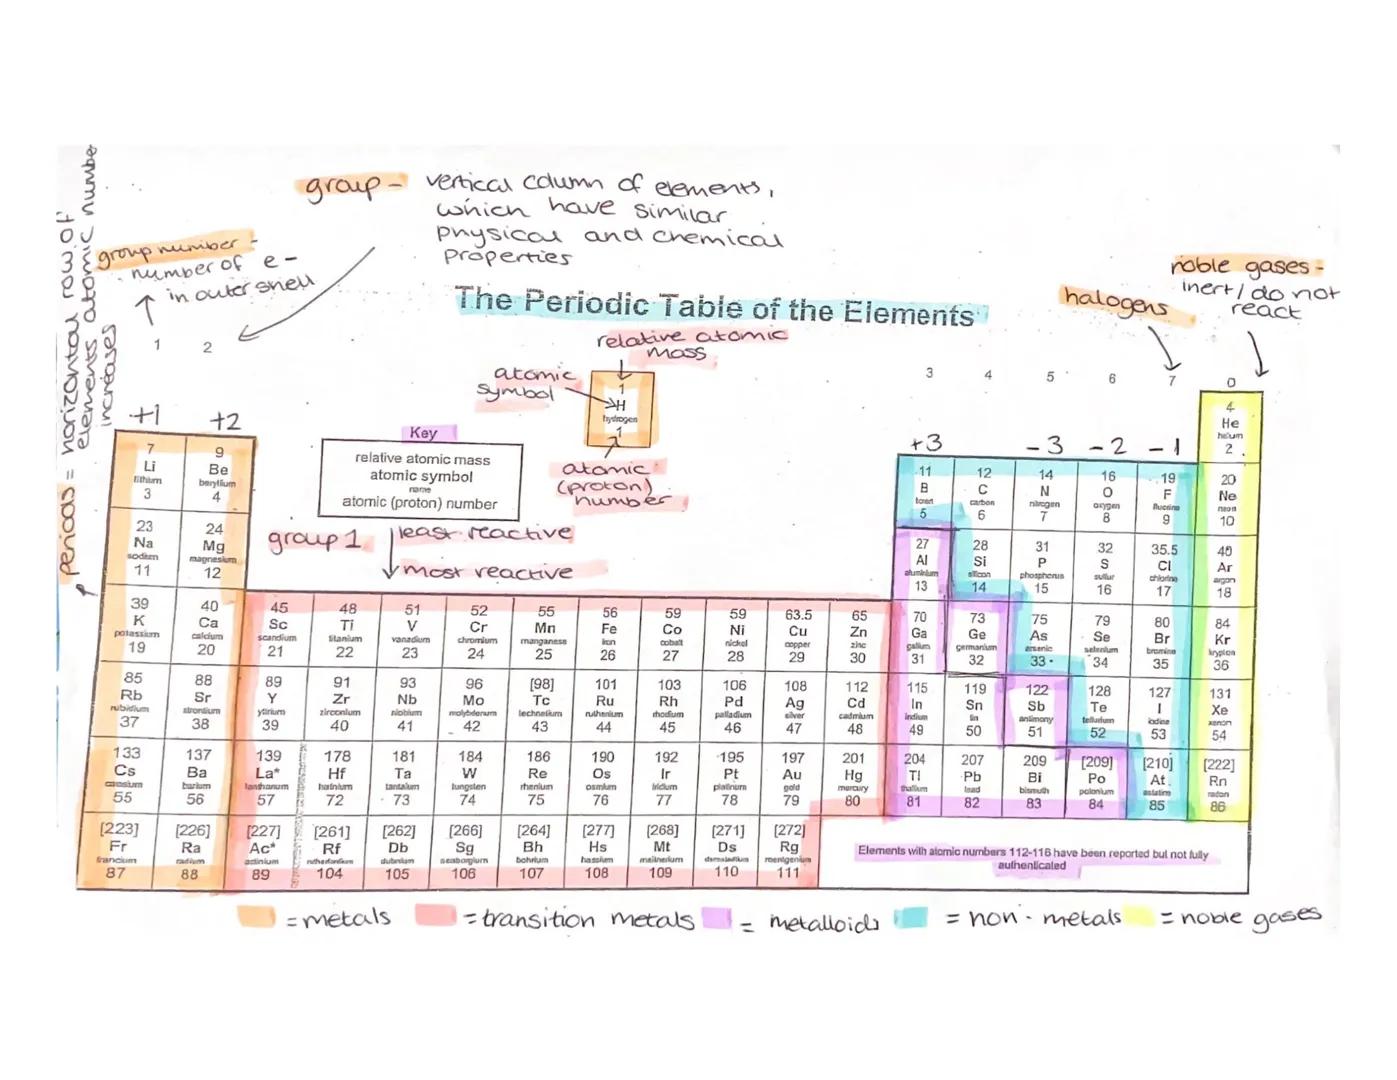 group - vertical column of elements,
which have similar
physical and chemical
properties
periods = horizontal row of
elements atomic number
increases
group number -
number of e -
in outer shell
noble gases -
inert / do not
react
halogens
The Periodic Table of the Elements
relative atomic
mass
atomic
symbol
1
H
hydrogen
1
atomic
(proton)
number
Key
relative atomic mass
atomic symbol
name
atomic (proton) number
group 1
least reactive
most reactive
1 2 3 4 5 6 7 0
+1 +2 +3 -3 -2 -1
4
He
helium
2
7 9 11 12 14 16 19 20
Li Be B C N O F Ne
lithium beryllium boron carbon nitrogen oxygen fluorine neon
3 4 5 6 7 8 9 10
23 24 27 28 31 32 35.5 40
Na Mg Al Si P S Cl Ar
sodium magnesium aluminium silicon phosphorus sulfur chlorine argon
11 12 13 14 15 16 17 18
39 40 45 48 51 52 55 56 59 59 63.5 65 70 73 75 79 80 84
K Ca Sc Ti V Cr Mn Fe Co Ni Cu Zn Ga Ge As Se Br Kr
potassium calcium scandium titanium vanadium chromium manganese iron cobalt nickel copper zinc gallium germanium arsenic selenium bromine krypton
19 20 21 22 23 24 25 26 27 28 29 30 31 32 33 34 35 36
85 88 89 91 93 96 [98] 101 103 106 108 112 115 119 122 128 127 131
Rb Sr Y Zr Nb Mo Tc Ru Rh Pd Ag Cd In Sn Sb Te I Xe
rubidium strontium yttrium zirconium niobium molybdenum technetium ruthenium rhodium palladium silver cadmium indium tin antimony tellurium iodine xenon
37 38 39 40 41 42 43 44 45 46 47 48 49 50 51 52 53 54
133 137 139 178 181 184 186 190 192 195 197 201 204 207 209 [209] [210] [222]
Cs Ba La* Hf Ta W Re Os Ir Pt Au Hg Tl Pb Bi Po At Rn
caesium barium lanthanum hafnium tantalum tungsten rhenium osmium iridium platinum gold mercury thallium lead bismuth polonium astatine radon
55 56 57 72 73 74 75 76 77 78 79 80 81 82 83 84 85 86
[223] [226] [227] [261] [262] [266] [264] [277] [268] [271] [272]
Fr Ra Ac* Rf Db Sg Bh Hs Mt Ds Rg
francium radium actinium rutherfordium dubnium seaborgium bohrium hassium meitnerium darmstadtium roentgenium
87 88 89 104 105 106 107 108 109 110 111
Elements with atomic numbers 112-116 have been reported but not fully
authenticated
= metals = transition metals = metalloids = non - metals = noble gases